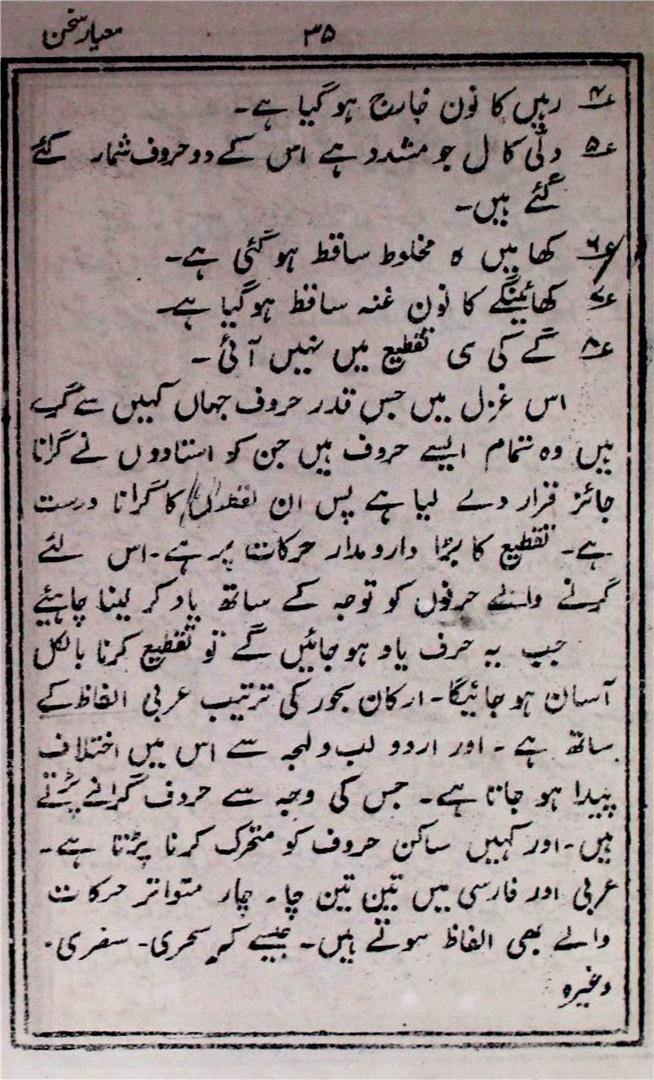 معیار سخن ۳۵
۴؎ رہیں کا نون خارج ہو گیا ہے۔
۵؎ دلّی کا ل جو مشدد ہے اس کے دو حروف شمار کئے
گئے ہیں۔
۶؎ کھا میں ہ مخلوط ساقط ہو گئی ہے۔
۷؎ کھائینگے کا نون غنہ ساقط ہو گیا ہے۔
۸؎ گے کی ی تقطیع میں نہیں آئی۔
اس غزل میں جس قدر حروف جہاں کہیں سے گرے
ہیں وہ تمام ایسے حروف ہیں جن کو استادوں نے گرانا
جائز قرار دے لیا ہے پس ان کا گرانا درست
ہے۔ تقطیع کا بڑا دارومدار حرکات پر ہے۔ اس لئے
گرنے والے حرفوں کو توجہ کے ساتھ یاد کر لینا چاہئیے
جب یہ حرف یاد ہو جائیں گے تو تقطیع کرنا بالکل
آسان ہو جائیگا۔ ارکان بحور کی ترتیب عربی الفاظ کے
ساتھ ہے۔ اور اردو لب و لہجہ سے اس میں اختلاف
پیدا ہو جاتا ہے۔ جس کی وجہ سے حروف گرانے پڑتے
ہیں۔ اور کہیں ساکن حروف کو متحرک کرنا پڑتا ہے۔
عربی اور فارسی میں تین تین چا۔ چار متواتر حرکات
والے بھی الفاظ ہوتے ہیں۔ جیسے کہ سحری۔ سفری۔
وغیرہ